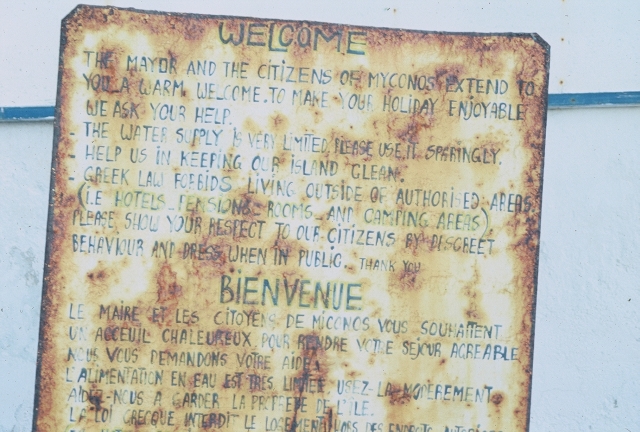 WELCOME
THE MAYOR AND THE CITIZENS OF MYCONOS EXTEND TO
YOU A WARM WELCOME. TO MAKE YOUR HOLIDAY ENJOYABLE
WE ASK YOUR HELP.
- THE WATER SUPPLY IS VERY LIMITED, PLEASE USE IT SPARINGLY.
- HELP US IN KEEPING OUR ISLAND CLEAN.
- GREEK LAW FORBIDS LIVING OUTSIDE OF AUTHORISED AREAS
(i.E HOTELS_PENSIONS_ROOMS_AND CAMPING AREAS)
PLEASE SHOW YOUR RESPECT TO OUR CITIZENS BY DISCREET
BEHAVIOUR AND DRESS WHEN IN PUBLIC. THANK YOU
BIENVENUE
LE MAIRE ET LES CITOYENS DE MICONOS VOUS SOUHAITTENT
UN ACCEUIL CHALEUREUX. POUR RENDRE VOTRE SEJOUR AGREABLE
NOUS VOUS DEMANDONS VOTRE AIDE.
L'ALIMENTATION EN EAU EST TRES LIMITEE USEZ-LA
AIDEZ-NOUS A GARDER LA PROPRETE DE L'ILE.
LA LOI GRECQUE INTERDIT LE LOGEMENT HORS DES ENDROITS